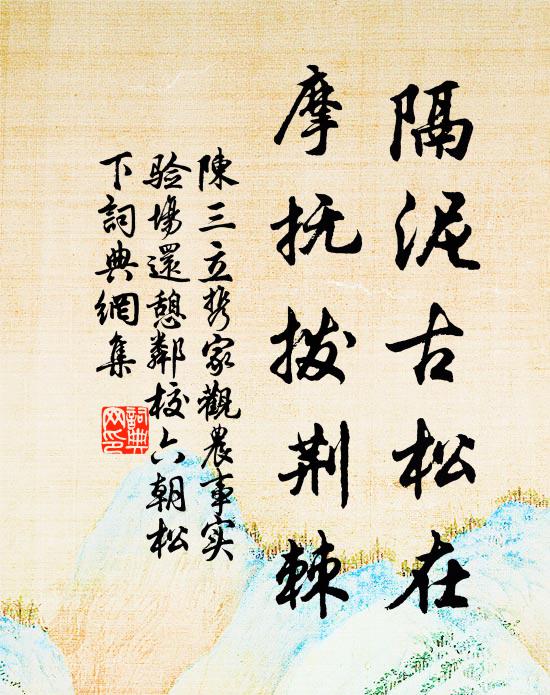 隔泥古松在
摩抚拨荆棘
陳三立携家觀農事实
验場還憩鄰校六朝松
下詞典網集
詞典
网印